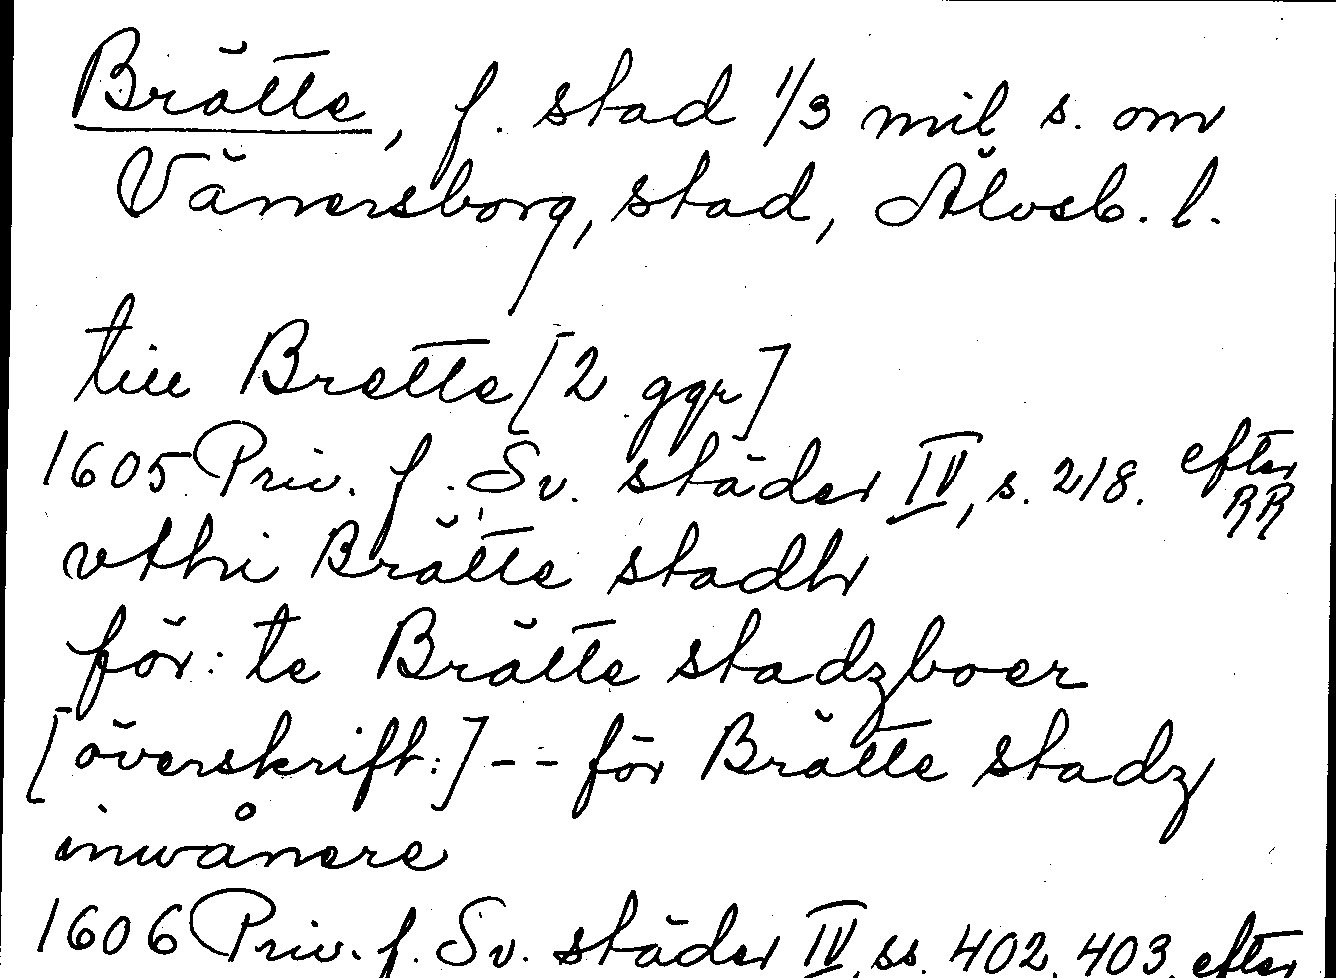 Brätte, f. stad 1/3 mil s. om
Vänersborg, stad, Älvsb. l.
till Brette [2 ggr]
1605 Priv. f. Sv. städer IV, s. 218. efter
RR
vthi Brätte stadh
för: te Brätte stadzboer
[överskrift:] -- för Brätte stadz
inwånere
1606 Priv. f. Sv. städer IV, ss. 402, 403, efter